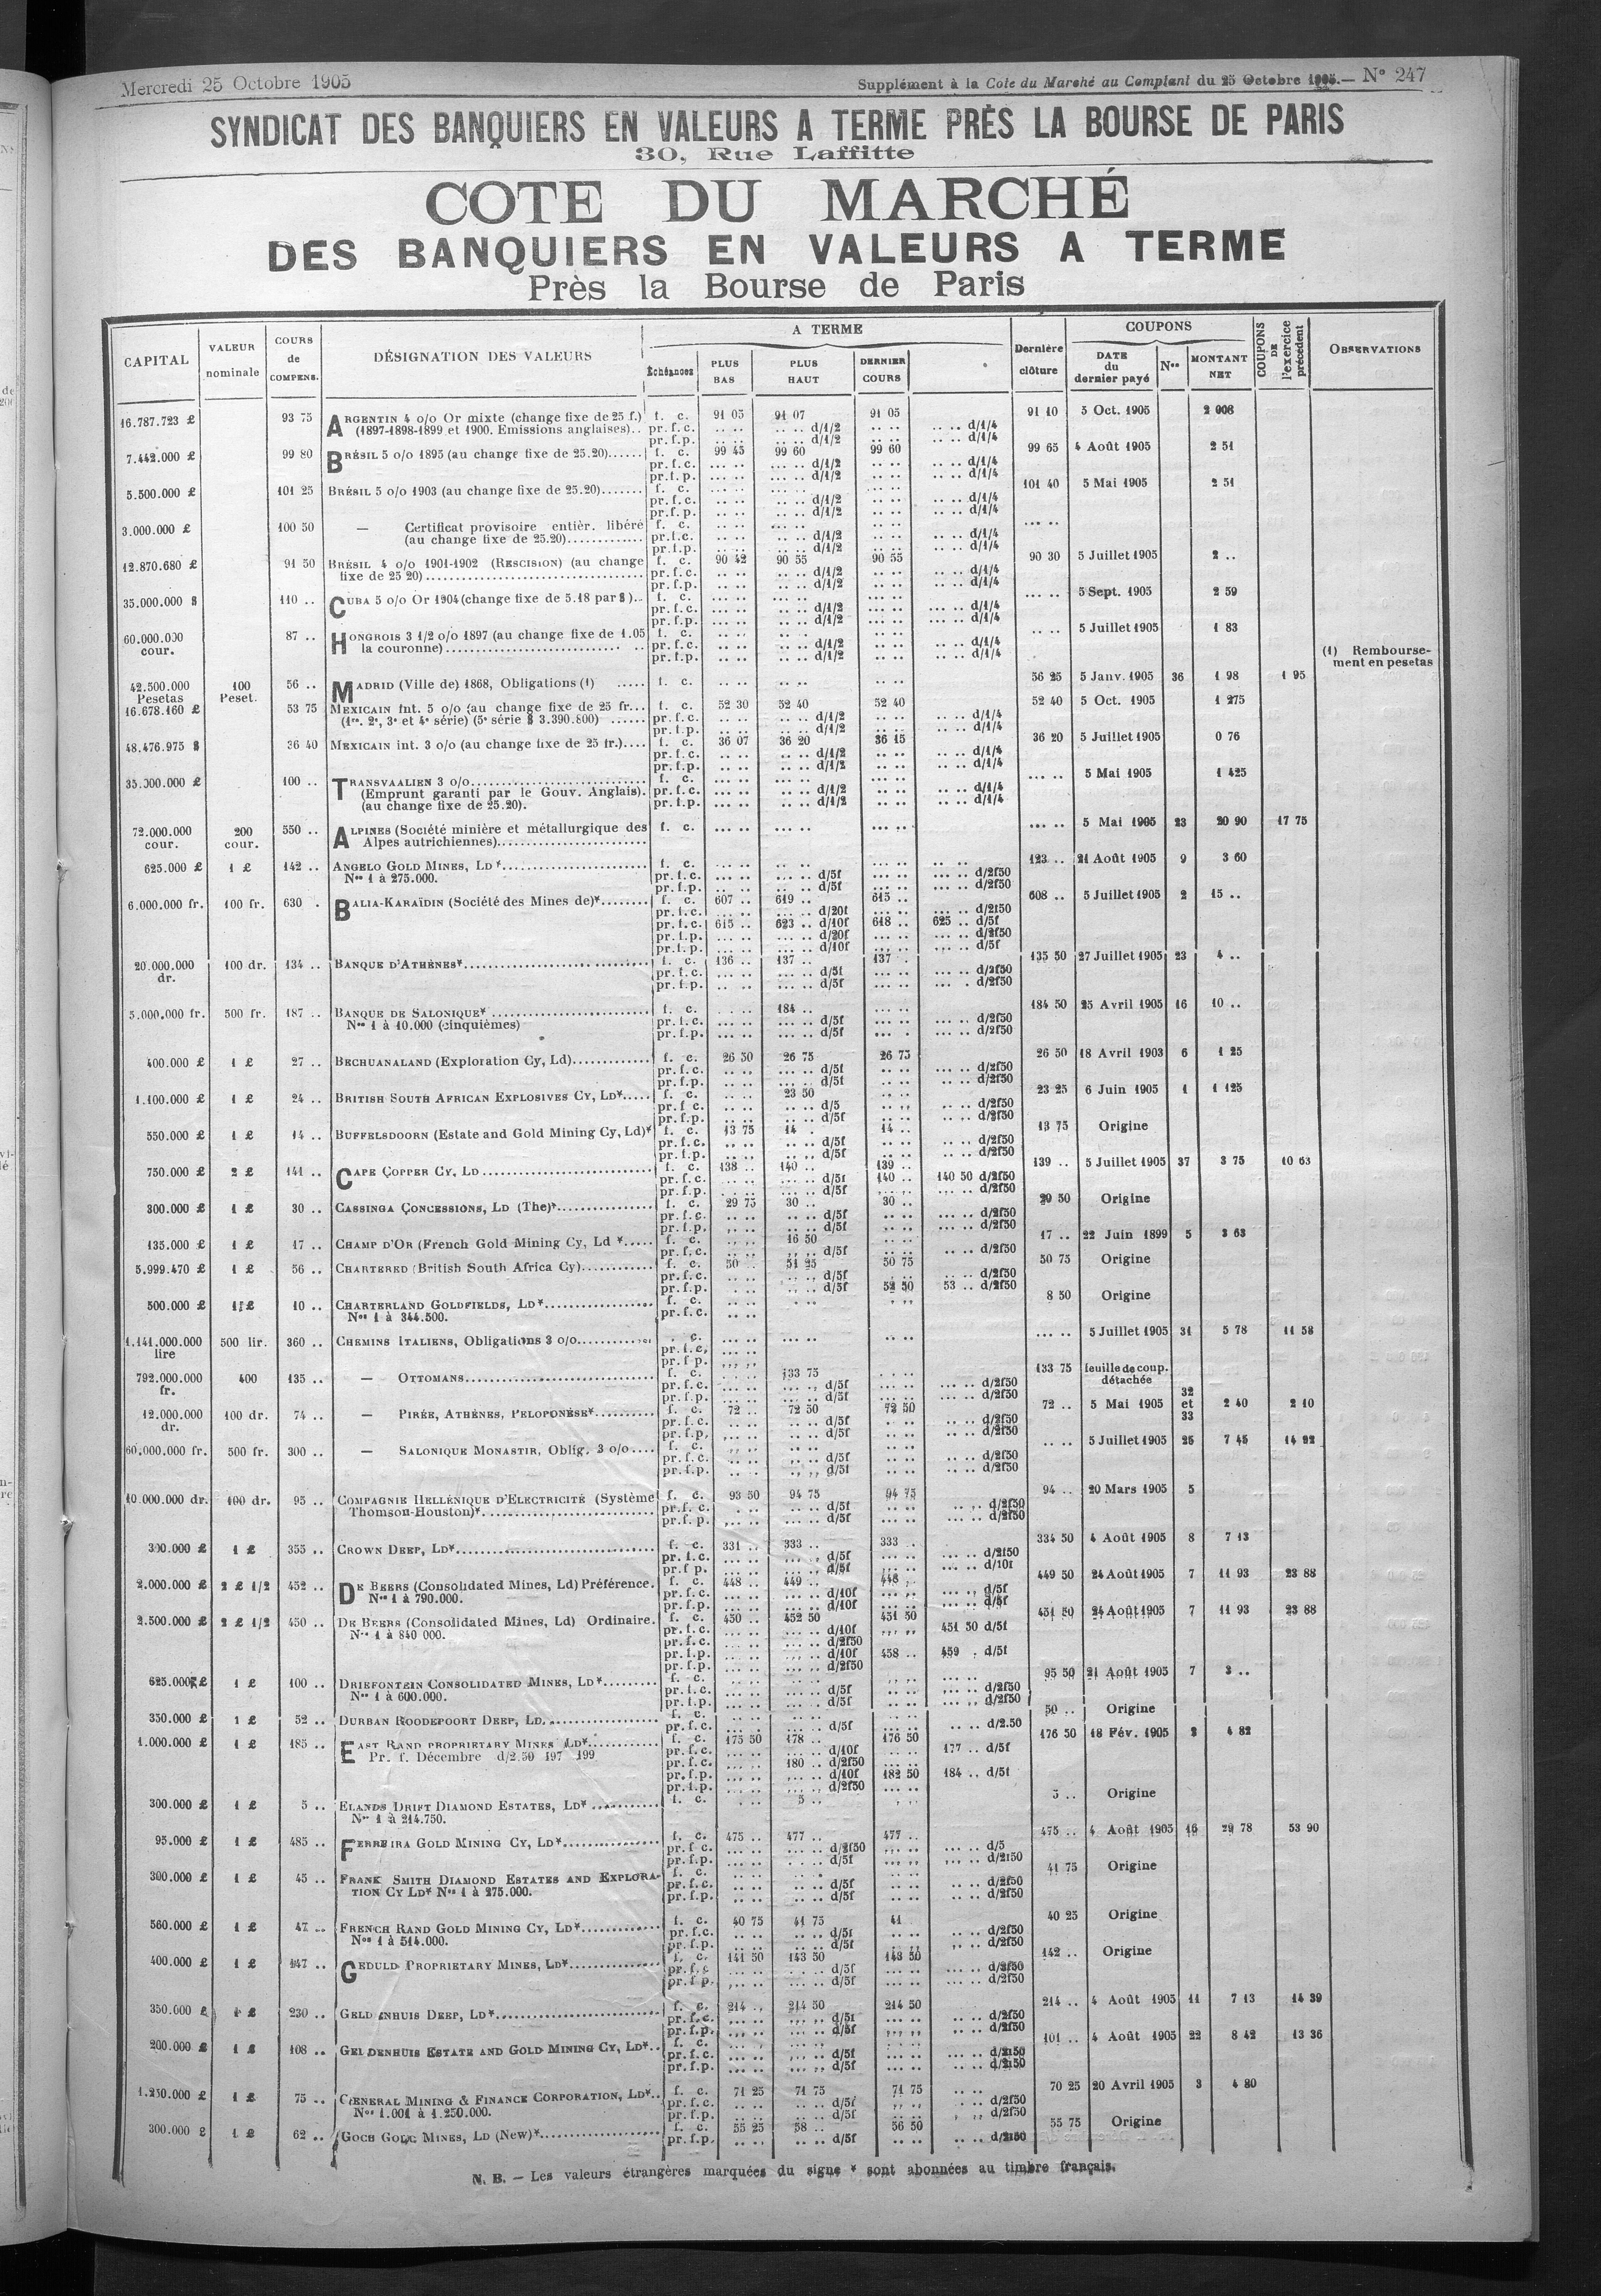 Mercredi 25 Octobre 1905
Supplément à la Cote du Marché au Comptant du 25 Octobre 1905. — N° 247
SYNDICAT DES BANQUIERS EN VALEURS A TERME PRÈS LA BOURSE DE PARIS
30, Rue Laffitte
COTE DU MARCHÉ
DES BANQUIERS EN VALEURS A TERME
Près la Bourse de Paris
CAPITAL | VALEUR nominale | COURS de COMPENS. | DÉSIGNATION DES VALEURS | A TERME | Échéances | PLUS BAS | PLUS HAUT | DERNIER COURS | Dernière clôture | COUPONS | DATE du dernier payé | Nos | MONTANT NET | COUPONS DE l'exercice précédent | OBSERVATIONS
16.787.723 £ 93 75 ARGENTIN 4 o/o Or mixte (change fixe de 25 f.) f. c. 91 05 91 07 91 05 91 10 5 Oct. 1905 2 008
(1897-1898-1899 et 1900. Emissions anglaises).. pr.f.c. d/1/2 d/1/4
pr.f.p. d/1/2 d/1/4
7.442.000 £ 99 80 BRÉSIL 5 o/o 1895 (au change fixe de 25.20)...... f. c. 99 45 99 60 99 60 99 65 4 Août 1905 2 51
pr.f.c. d/1/2 d/1/4
pr.f.p. d/1/2 d/1/4
5.500.000 £ 101 25 BRÉSIL 5 o/o 1903 (au change fixe de 25.20)....... f. c. 101 40 5 Mai 1905 2 51
pr.f.c. d/1/2 d/1/4
pr.f.p. d/1/2 d/1/4
3.000.000 £ 100 50 — Certificat provisoire entièr. libéré f. c.
(au change fixe de 25.20)............. pr.f.c. d/1/2 d/1/4
pr.f.p. d/1/2 d/1/4
12.870.680 £ 91 50 BRÉSIL 4 o/o 1901-1902 (RESCISION) (au change f. c. 90 42 90 55 90 55 90 30 5 Juillet 1905 2 ..
fixe de 25 20)........ pr.f.c. d/1/2 d/1/4
pr.f.p. d/1/2 d/1/4
35.000.000 $ 110 .. CUBA 5 o/o Or 1904 (change fixe de 5.18 par $).. f. c. 5 Sept. 1905 2 59
pr.f.c. d/1/2 d/1/4
pr.f.p. d/1/2 d/1/4
60.000.000 cour. 87 .. HONGROIS 3 1/2 o/o 1897 (au change fixe de 1.05 f. c. 5 Juillet 1905 1 83
la couronne)........ pr.f.c. d/1/2 d/1/4
pr.f.p. d/1/2 d/1/4
(1) Remboursement en pesetas
42.500.000 Pesetas 100 Peset. 56 .. MADRID (Ville de) 1868, Obligations (1) ..... f. c. 56 25 5 Janv. 1905 36 1 98 1 95
16.678.160 £ 53 75 MEXICAIN Int. 5 o/o (au change fixe de 25 fr... f. c. 52 30 52 40 52 40 52 40 5 Oct. 1905 1 275
(1re. 2e, 3e et 4e série) (5e série $ 3.390.800) ...... pr.f.c. d/1/2 d/1/4
pr.f.p. d/1/2 d/1/4
48.476.975 $ 36 40 MEXICAIN int. 3 o/o (au change fixe de 25 fr.).... f. c. 36 07 36 20 36 15 36 20 5 Juillet 1905 0 76
pr.f.c. d/1/2 d/1/4
pr.f.p. d/1/2 d/1/4
35.000.000 £ 100 .. TRANSVAALIEN 3 o/o........ f. c. 5 Mai 1905 1 425
(Emprunt garanti par le Gouv. Anglais). pr.f.c. d/1/2 d/1/4
(au change fixe de 25.20). pr.f.p. d/1/2 d/1/4
72.000.000 cour. 200 cour. 550 .. ALPINES (Société minière et métallurgique des f. c. 5 Mai 1905 23 20 90 17 75
Alpes autrichiennes)........
625.000 £ 1 £ 142 .. ANGELO GOLD MINES, LD*........ f. c. 123 .. 21 Août 1905 9 3 60
Nos 1 à 275.000. pr.f.c. d/5f d/2f50
pr.f.p. d/5f d/2f50
6.000.000 fr. 100 fr. 630 . BALIA-KARAÏDIN (Société des Mines de)*........ f. c. 607 .. 619 .. 615 .. 608 .. 5 Juillet 1905 2 15 ..
pr.f.c. d/20f d/2f50
pr.f.c. 615 .. 623 .. d/10f 618 .. 625 .. d/5f
pr.f.p. d/20f d/2f50
pr.f.p. d/10f d/5f
20.000.000 dr. 100 dr. 134 .. BANQUE D'ATHÈNES*........ f. c. 136 .. 137 .. 137 . 135 50 27 Juillet 1905 23 4 ..
pr.f.c. d/5f d/2f50
pr.f.p. d/5f d/2f50
5.000.000 fr. 500 fr. 187 .. BANQUE DE SALONIQUE*........ f. c. 184 .. 184 50 25 Avril 1905 16 10 ..
Nos 1 à 10.000 (cinquièmes) pr.f.c. d/5f d/2f50
pr.f.p. d/5f d/2f50
400.000 £ 1 £ 27 .. BECHUANALAND (Exploration Cy, Ld)........ f. c. 26 50 26 75 26 75 26 50 18 Avril 1903 6 1 25
pr.f.c. d/5f d/2f50
pr.f.p. d/5f d/2f50
1.100.000 £ 1 £ 24 .. BRITISH SOUTH AFRICAN EXPLOSIVES CY, LD*..... f. c. 23 50 23 25 6 Juin 1905 1 1 125
pr.f c. d/5 d/2f50
pr.f.p. d/5f d/2f50
550.000 £ 1 £ 14 .. BUFFELSDOORN (Estate and Gold Mining Cy, Ld)* f. c. 13 75 14 . 14 .. 13 75 Origine
pr.f.c. d/5f d/2f50
pr.f.p. d/5f d/2f50
750.000 £ 2 £ 141 .. CAPE COPPER CY, LD........ f. c. 138 .. 140 .. 139 .. 139 .. 5 Juillet 1905 37 3 75 10 63
pr.f.c. d/5f 140 .. 140 50 d/2f50
pr.f.p. d/5f d/2f50
300.000 £ 1 £ 30 .. CASSINGA CONCESSIONS, LD (The)*........ f. c. 29 75 30 .. 30 .. 29 50 Origine
pr.f.c. d/5f d/2f50
pr.f.p. d/5f d/2f50
135.000 £ 1 £ 17 .. CHAMP D'OR (French Gold Mining Cy, Ld *..... f. c. 16 50 17 .. 22 Juin 1899 5 3 63
pr.f.c. d/5f d/2f50
5.999.470 £ 1 £ 56 .. CHARTERED (British South Africa Cy)........ f. c. 50 .. 51 25 50 75 50 75 Origine
pr.f.c. d/5f d/2f50
pr.f.p. d/5f 52 50 53 .. d/2f50
500.000 £ 1 £ 10 .. CHARTERLAND GOLDFIELDS, LD*........ f. c. 8 50 Origine
Nos 1 à 344.500. pr.f.c.
1.141.000.000 lire 500 lir. 360 .. CHEMINS ITALIENS, Obligations 3 o/o........ c. 5 Juillet 1905 31 5 78 11 58
pr.f.c.
pr.f p.
792.000.000 fr. 400 135 .. — OTTOMANS........ f. c. 133 75 133 75 feuille de coup. détachée
pr.f.c. d/5f d/2f50
pr.f.p. d/5f d/2f50
12.000.000 dr. 100 dr. 74 .. — PIRÉE, ATHÈNES, PELOPONÈSE*........ f. c. 72 .. 72 50 72 50 72 .. 5 Mai 1905 32 et 33 2 40 2 10
pr.f.c. d/5f d/2f50
pr.f.p. d/5f d/2f50
60.000.000 fr. 500 fr. 300 .. — SALONIQUE MONASTIR, Oblig. 3 o/o.... f. c. 5 Juillet 1905 25 7 45 14 92
pr.f.c. d/5f d/2f50
pr.f.p. d/5f d/2f50
10.000.000 dr. 100 dr. 95 .. COMPAGNIE HELLÉNIQUE D'ELECTRICITÉ (Système f. c. 93 50 94 75 94 75 94 .. 20 Mars 1905 5
Thomson-Houston)*........ pr.f.c. d/5f d/2f50
pr.f.p. d/5f d/2f50
300.000 £ 1 £ 355 .. CROWN DEEP, LD*........ f. c. 331 .. 333 .. 333 .. 334 50 4 Août 1905 8 7 13
pr.f.c. d/5f d/2f50
pr.f p. d/5f d/10f
2.000.000 £ 2 £ 1/2 452 .. DE BEERS (Consolidated Mines, Ld) Préférence. f. c. 448 .. 449 .. 448 .. 449 50 24 Août 1905 7 11 93 23 88
Nos 1 à 790.000. pr.f.c. d/10f d/5f
pr.f.p. d/10f d/5f
2.500.000 £ 2 £ 1/2 450 .. DE BEERS (Consolidated Mines, Ld) Ordinaire. f. c. 450 .. 452 50 451 50 451 50 24 Août 1905 7 11 93 23 88
Nos 1 à 840 000. pr.f.c. d/10f 451 50 d/5f
pr.f.c. d/2f50
pr.f.p. d/10f 458 .. 459 . d/5f
pr.f.p. d/2f50
625.000 £ 1 £ 100 .. DRIEFONTEIN CONSOLIDATED MINES, LD*........ f. c. 95 50 21 Août 1905 7 3 ..
Nos 1 à 600.000. pr.f.c. d/5f d/2f50
pr.f.p. d/5f d/2f50
350.000 £ 1 £ 52 .. DURBAN ROODEPOORT DEEP, LD........ f. c. 50 .. Origine
pr.f.c. d/5f d/2.50
1.000.000 £ 1 £ 185 .. EAST RAND PROPRIETARY MINES LD*........ f. c. 175 50 178 .. 176 50 176 50 18 Fév. 1905 3 4 82
Pr. f. Décembre d/2.50 197 199 pr.f.c. d/10f 177 .. d/5f
pr.f.c. 180 .. d/2f50
pr.f.p. d/10f 182 50 184 .. d/5f
pr.f.p. d/2f50
300.000 £ 1 £ 5 .. ELANDS DRIFT DIAMOND ESTATES, LD*........ f. c. 5 .. 5 .. Origine
Nos 1 à 214.750.
95.000 £ 1 £ 485 .. FERREIRA GOLD MINING CY, LD*........ f. c. 475 .. 477 .. 477 .. 475 .. 4 Août 1905 16 29 78 53 90
pr.f c. d/2f50 d/5
pr.f.p. d/5f d/2f50
300.000 £ 1 £ 45 .. FRANK SMITH DIAMOND ESTATES AND EXPLORA- f. c. 41 75 Origine
TION CY LD* Nos 1 à 275.000. pr.f.c. d/5f d/2f50
pr.f.p. d/5f d/2f50
560.000 £ 1 £ 47 .. FRENCH RAND GOLD MINING CY, LD*........ f. c. 40 75 41 75 41 .. 40 25 Origine
Nos 1 à 514.000. pr.f.c. d/5f d/2f50
pr.f.p. d/5f d/2f50
400.000 £ 1 £ 147 .. GEDULD PROPRIETARY MINES, LD*........ f. c. 141 50 143 50 143 50 142 .. Origine
pr.f.c d/5f d/2f50
pr.f p. d/5f d/2f50
350.000 £ 1 £ 230 .. GELDENHUIS DEEP, LD*........ f. c. 214 .. 214 50 214 50 214 .. 4 Août 1905 11 7 13 14 39
pr.f.c. d/5f d/2f50
pr.f.p. d/5f d/2f50
200.000 £ 1 £ 108 .. GELDENHUIS ESTATE AND GOLD MINING CY, LD*.. f. c. 101 .. 4 Août 1905 22 8 42 13 36
pr.f.c. d/5f d/2f50
pr.f.p. d/5f d/2f50
1.250.000 £ 1 £ 75 .. GENERAL MINING & FINANCE CORPORATION, LD*.. f. c. 71 25 71 75 71 75 70 25 20 Avril 1905 3 4 80
Nos 1.001 à 1.250.000. pr.f.c. d/5f d/2f50
pr.f.p. d/5f d/2f50
300.000 £ 1 £ 62 .. GOCH GOLD MINES, LD (New)*........ f. c. 55 25 58 .. 56 50 55 75 Origine
pr.f.p. d/5f d/2f50
N. B. — Les valeurs étrangères marquées du signe * sont abonnées au timbre français.